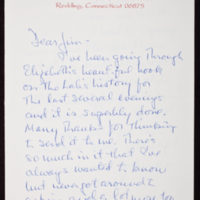 Redding, Connecticut 06875
Dear Jim -
I've been going through
Elizabeth's beautiful book
on The Lake's history for
The last several evenings
and it is superbly done.
Many Thanks for Thinking
to send it to me. There's
so much in it that I've
always wanted to know
but never got around to